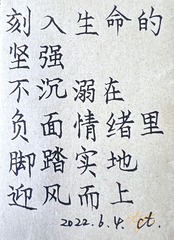 刻入生命的
坚强
不沉溺在
负面情绪里
脚踏实地
迎风而上
2022.6.4. ct.